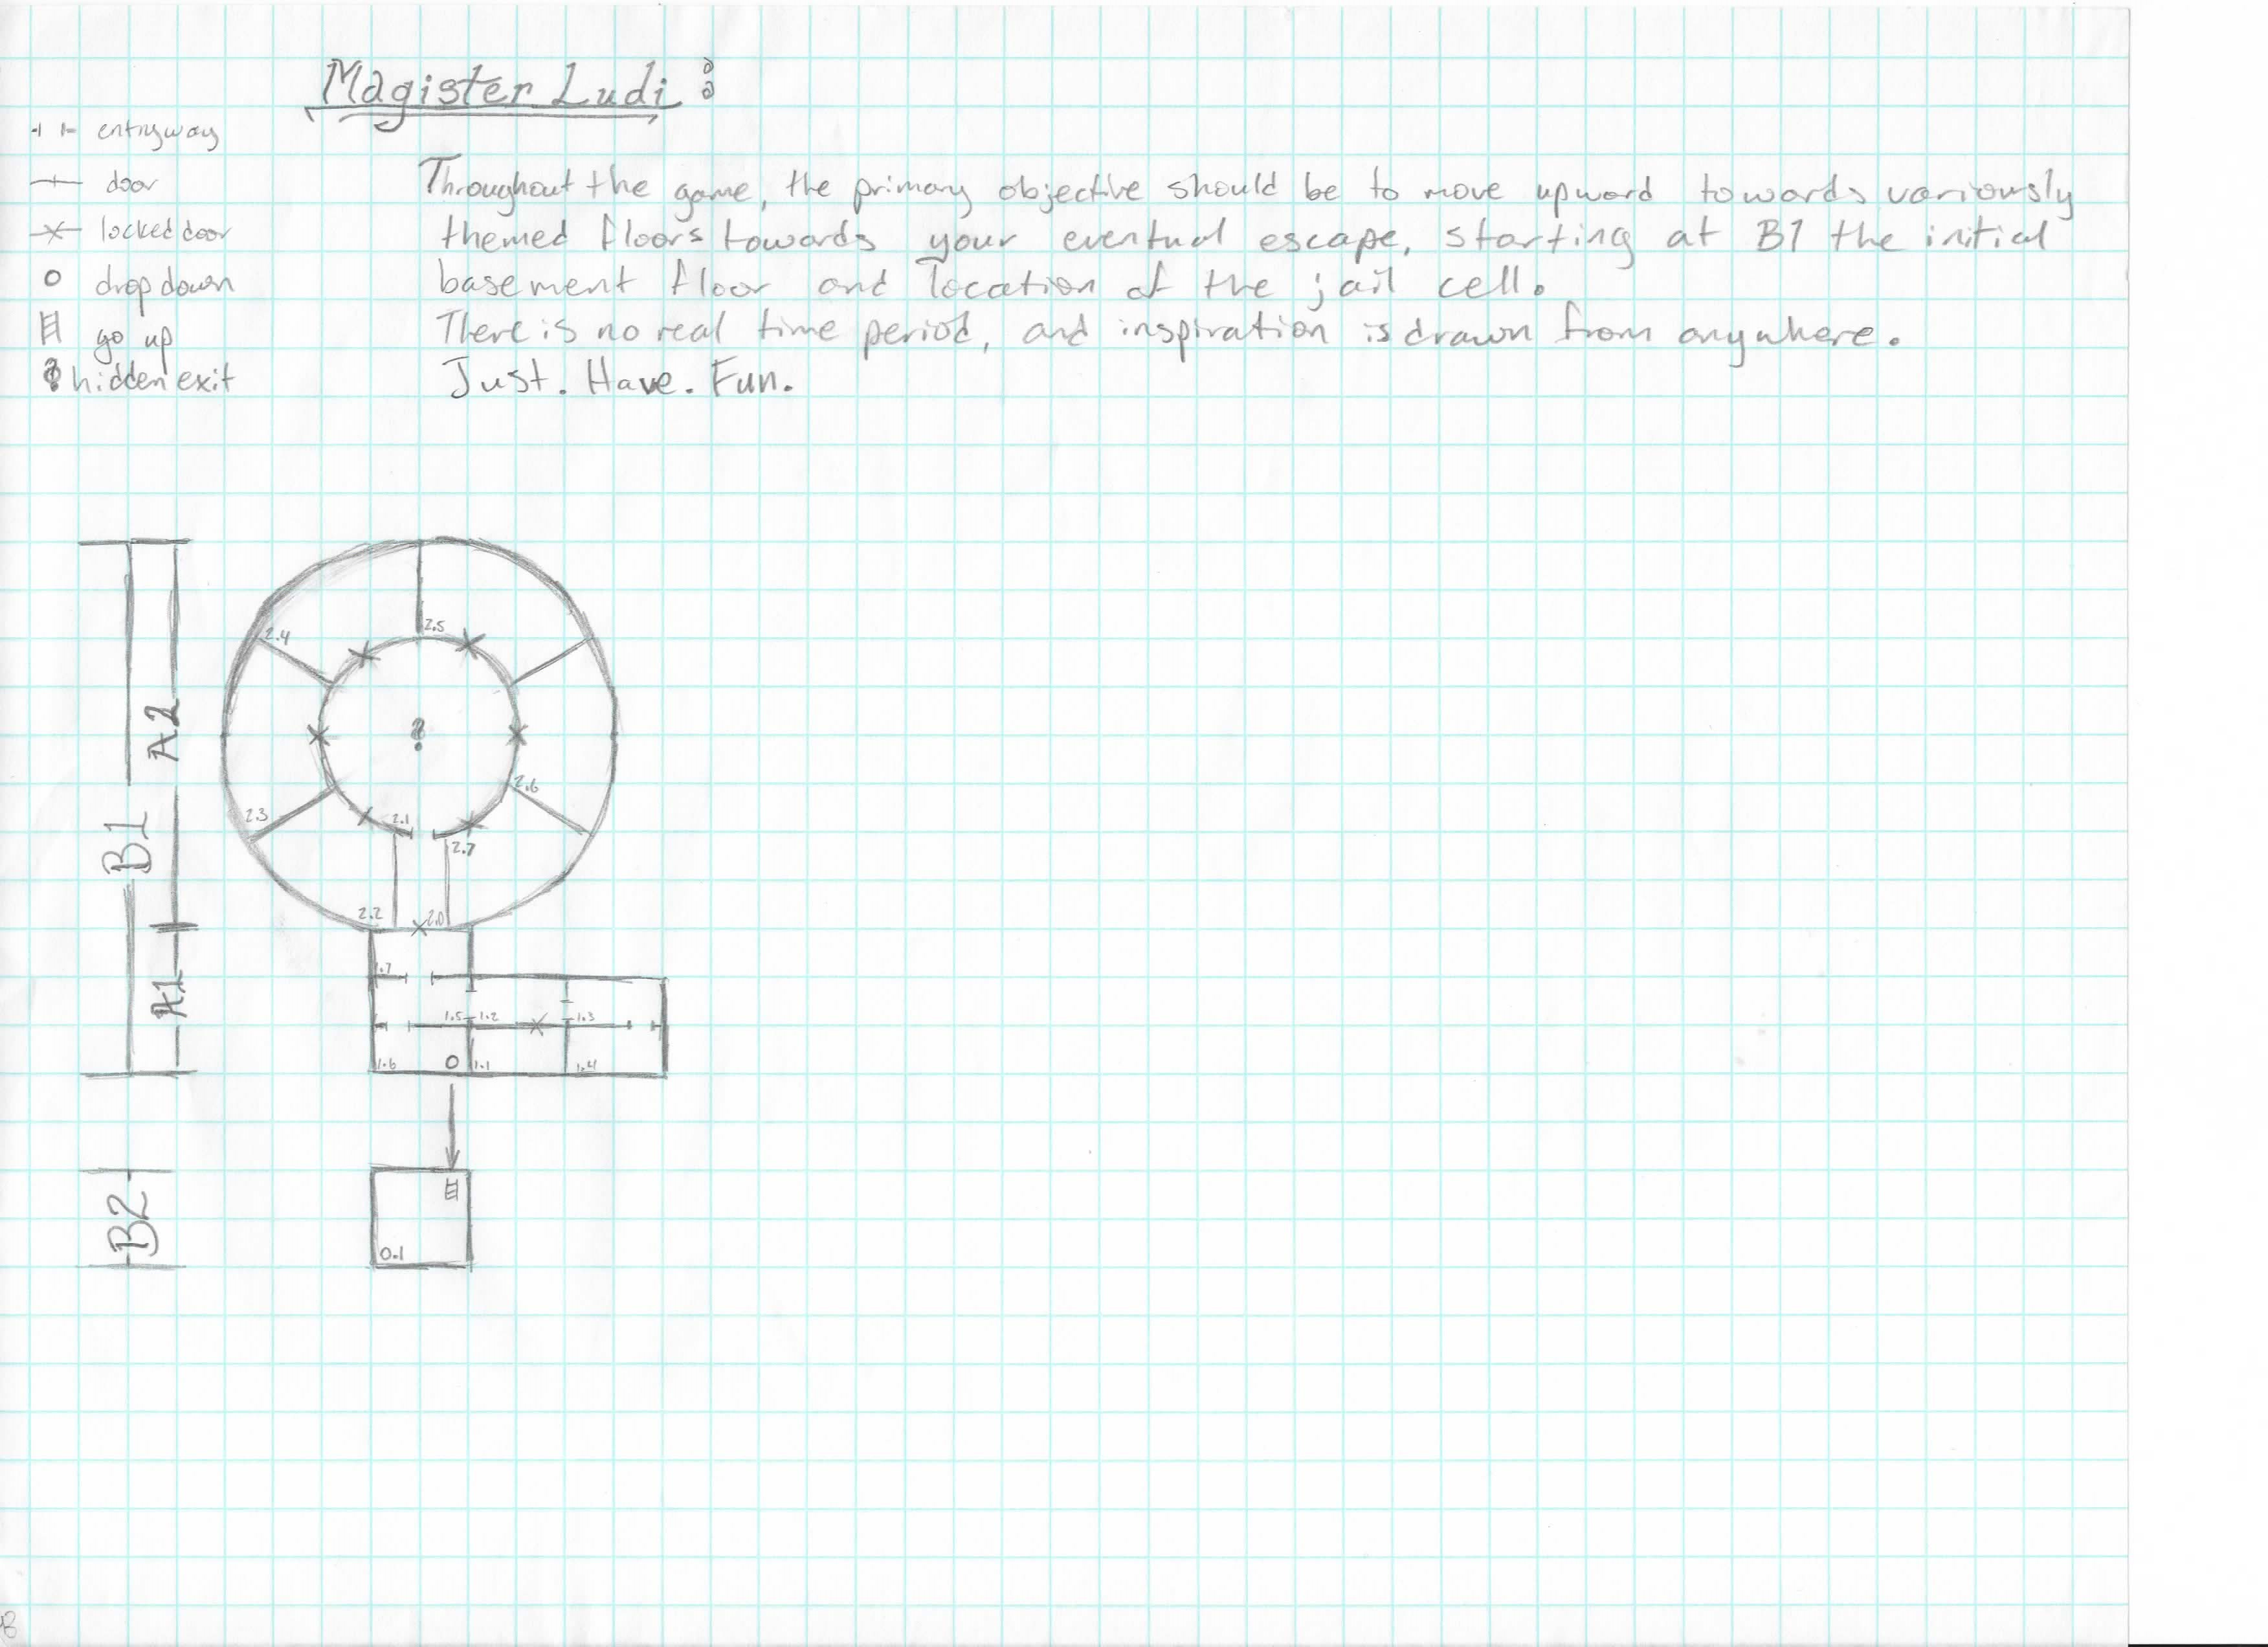 Magister Ludi :
entryway
door
locked door
drop down
go up
hidden exit
Throughout the game, the primary objective should be to move upward towards variously
themed floors towards your eventual escape, starting at B1 the initial
basement floor and location of the jail cell.
There is no real time period, and inspiration is drawn from anywhere.
Just. Have. Fun.
A2
B1
A1
B2
2.4
2.5
?
2.6
2.3
2.1
2.7
2.2
2.0
1.7
1.5
1.2
1.3
1.6
1.1
1.4
0.1